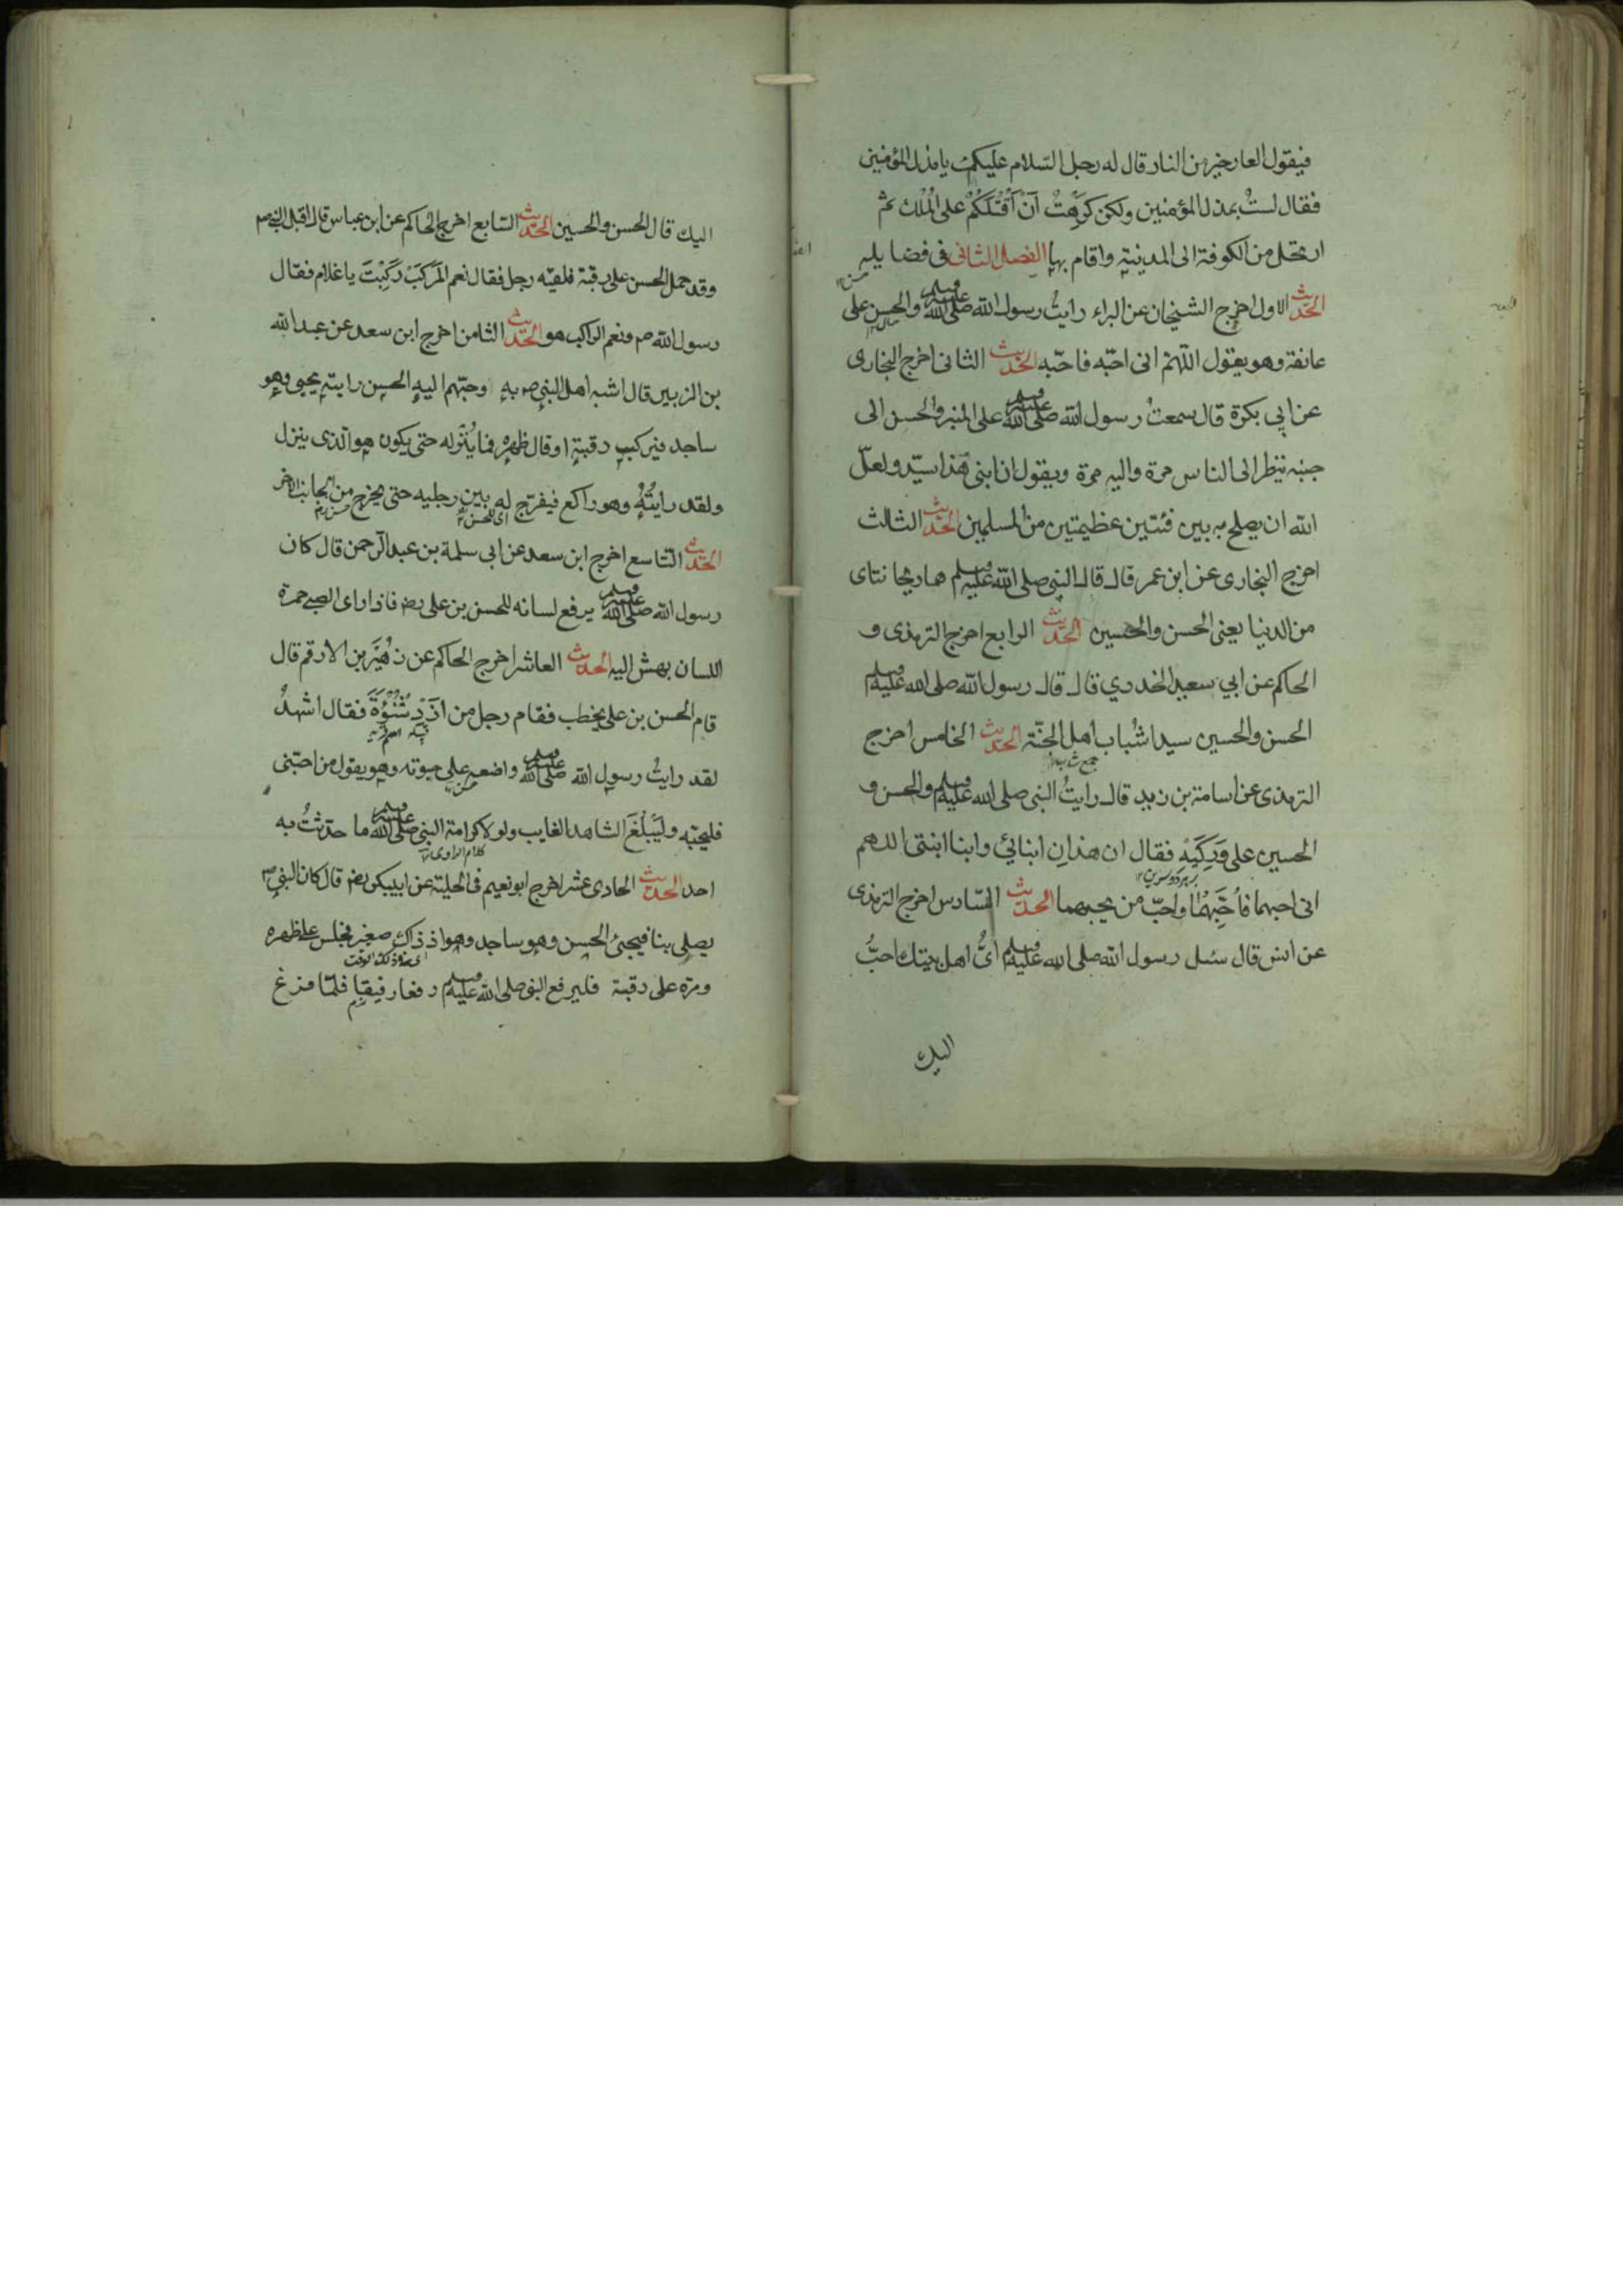 فيقول العار خير من النار قال له رجل السّلام عليكم يا مذل المؤمنين
فقال لستُ بمذل المؤمنين ولكن كرِهْتُ اَنْ اَقْتُلَكُمْ على المُلْك ثم
ارتحل من الكوفة الى المدينة واقام بها الفصل الثانى فى فضايله
الحديث الاول اخرج الشيخان عن البراء رايتُ رسول الله صلى الله عليه وسلم والحسن على
عاتقه وهو يقول اللّهمّ انى احبّه فاحبّه الحديث الثانى اخرج البخارى
عن ابي بكرة قال سمعتُ رسول الله صلى الله عليه وسلم على المنبر والحسن الى
جنبه ينظر الى الناس مرة واليه مرة ويقول ان ابنى هذا سيّد ولعلّ
الله ان يصلح به بين فئتين عظيمتين من المسلمين الحديث الثالث
اخرج البخارى عن ابن عمر قال قال النبى صلى الله عليه وسلم هما ريحانتاى
من الدنيا يعنى الحسن والحسين الحديث الرابع اخرج الترمذى و
الحاكم عن ابي سعيد الخدري قال قال رسول الله صلى الله عليه وسلم
الحسن والحسين سيدا شُباب اهل الجنّة الحديث الخامس اخرج
الترمذى عن اسامة بن زيد قال رايتُ النبى صلى الله عليه وسلم والحسن و
الحسين على وَرِكَيْه فقال ان هذانِ ابنائي وابنا ابنتى اللهم
انى احبهما فأَحِبَّهُمَا واحبّ من يحبهما الحديث السّادس اخرج الترمذى
عن انس قال سئل رسول الله صلى الله عليه وسلم اىُّ اهل بيتك احبُّ
اليك
اليك قال الحسن والحسين الحديث السّابع اخرج الحاكم عن ابن عباس قال اقبل النبي ص
وقد حمل الحسن على رقبة فلقيه رجل فقال نعم المَركَبَ رَكِبْتَ يا غلام فقال
رسول الله ص ونعم الراكب هو الحديث الثامن اخرج ابن سعد عن عبد الله
بن الزبير قال اشبه اهل النبي ص به اوحبّهم اليه الحسن رايته يجيى وهو
ساجد فيركب رقبته او قال ظهره فما يُنْزله حتى يكون هو الّذى ينزل
ولقد رايتُهُ وهو راكع فيفرّج له بين رجليه حتى يخرج من الجانب الاخر
الحديث التاسع اخرج ابن سعد عن ابى سلمة بن عبد الرّحمن قال كان
رسول الله صلى الله عليه وسلم يرفع لسانه للحسن بن على رض فاذا راى الصبى حمرة
اللسان بهش اليه الحديث العاشر اخرج الحاكم عن زُهَيْر بن الارقم قال
قام الحسن بن على يخطب فقام رجل من ازْدِ شُنُؤَةَ فقال اشهدُ
لقد رايتُ رسول الله صلى الله عليه وسلم واضعه على حبوته وهو يقول من احبّنى
فليحبّه ولْيُبْلِغْ الشاهد الغايب ولو لا كرامة النبى صلى الله عليه وسلم ما حدّثتُ به
كلام الراوى
احدا الحديث الحادى عشر اخرج ابو نعيم فى الحلية عن ابيبكر رض قال كان النبي ص
يصلى بنا فيجئ الحسن وهو ساجد وهو اذ ذاك صغير فجلس على ظهره
ومرة على رقبة فليرفع النبى صلى الله عليه وسلم رفعا رفيقا فلمّا فرغ